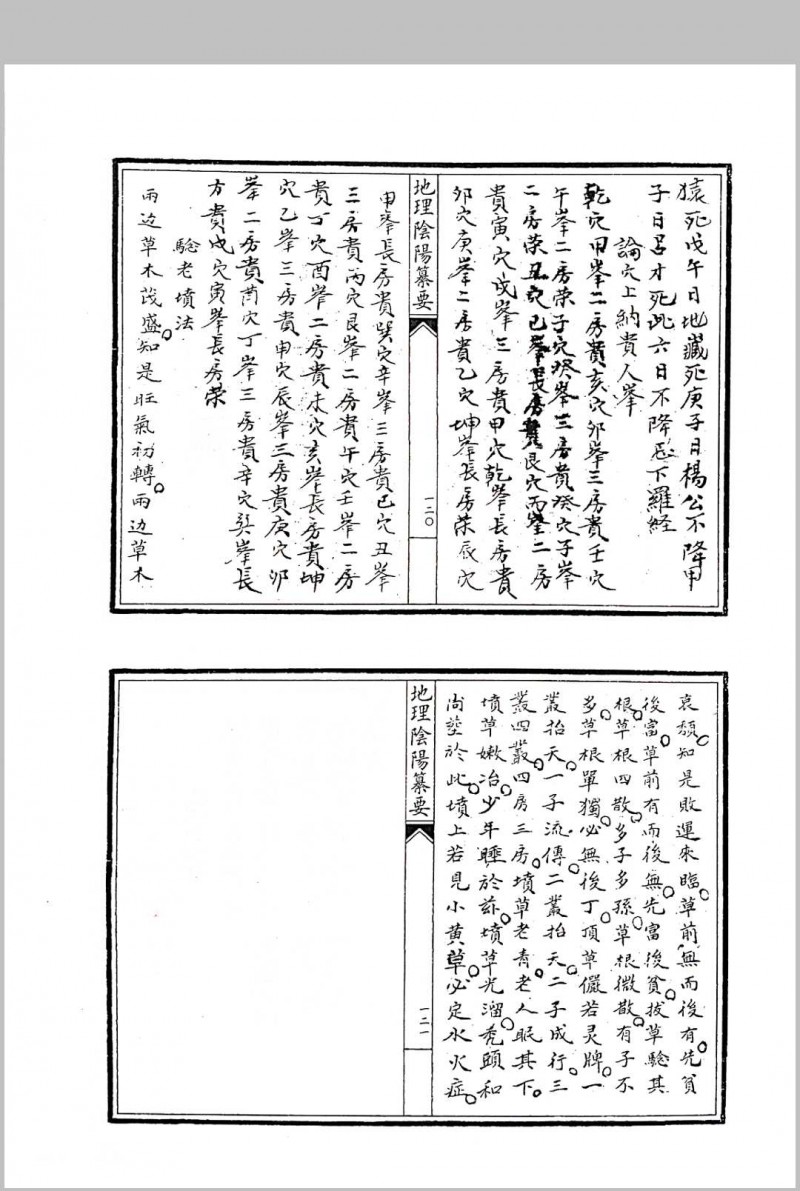 猿死戊午日地藏死庚子日楊公不降甲
子日呂才死此六日不降忌下羅経
論穴上納貴人峯
乾穴甲峯二房貴亥穴卯峯三房貴壬穴
午峯二房荣子穴癸峯三房貴癸穴子峯
二房荣丑穴巳峯長房貴艮穴丙峯二房
貴寅穴戌峯三房貴甲穴乾峯長房貴
卯穴庚峯二房貴乙穴坤峯長房荣辰穴
地理陰陽纂要
一二〇
申峯長房貴巽穴辛峯三房貴巳穴丑峯
三房貴丙穴艮峯二房貴午穴壬峯二房
貴丁穴酉峯二房貴未穴亥峯長房貴坤
穴乙峯三房貴申穴辰峯三房貴庚穴卯
峯二房貴酉穴丁峯三房貴辛穴巽峯長
方貴戌穴寅峯長房荣
驗老墳法
兩边草木茂盛。知是旺氣初轉。兩边草木
哀頹。知是敗運來臨。草前無而後有。先貧
後富。草前有而後無。先富後貧。拔草驗其
根。草根四散。多子多孫。草根微散。有子不
多。草根單獨。必無後丁。頂草儼若灵牌。一
叢抬天。一子流傳。二叢抬天。二子成行。三
叢四叢。四房三房。墳草老青。老人眠其下。
墳草嫩冶。少年睡於茲。墳草光溜。秃頭和
尚塟於此。墳上若見小黄草。必定水火症。
地理陰陽纂要
一二一